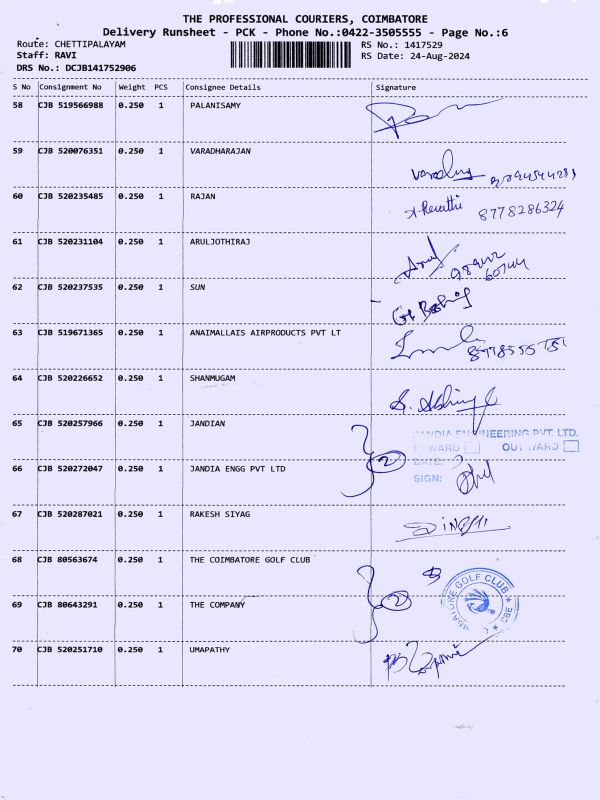 THE PROFESSIONAL COURIERS, COIMBATORE
Delivery Runsheet - PCK - Phone No.:0422-3505555 - Page No.:6
Route: CHETTIPALAYAM RS No.: 1417529
Staff: RAVI RS Date: 24-Aug-2024
DRS No.: DCJB141752906
S No Consignment No Weight PCS Consignee Details Signature
58 CJB 519566988 0.250 1 PALANISAMY
59 CJB 520076351 0.250 1 VARADHARAJAN
60 CJB 520235485 0.250 1 RAJAN
8778286324
61 CJB 520231104 0.250 1 ARULJOTHIRAJ
62 CJB 520237535 0.250 1 SUN
63 CJB 519671365 0.250 1 ANAIMALLAIS AIRPRODUCTS PVT LT
64 CJB 520226652 0.250 1 SHANMUGAM
65 CJB 520257966 0.250 1 JANDIAN
JANDIA ENGINEERING PVT. LTD.
INWARD OUTWARD
2
DATE:
66 CJB 520272047 0.250 1 JANDIA ENGG PVT LTD
SIGN:
67 CJB 520287021 0.250 1 RAKESH SIYAG
68 CJB 80563674 0.250 1 THE COIMBATORE GOLF CLUB
GOLF CLUB
CBE
2
69 CJB 80643291 0.250 1 THE COMPANY
70 CJB 520251710 0.250 1 UMAPATHY